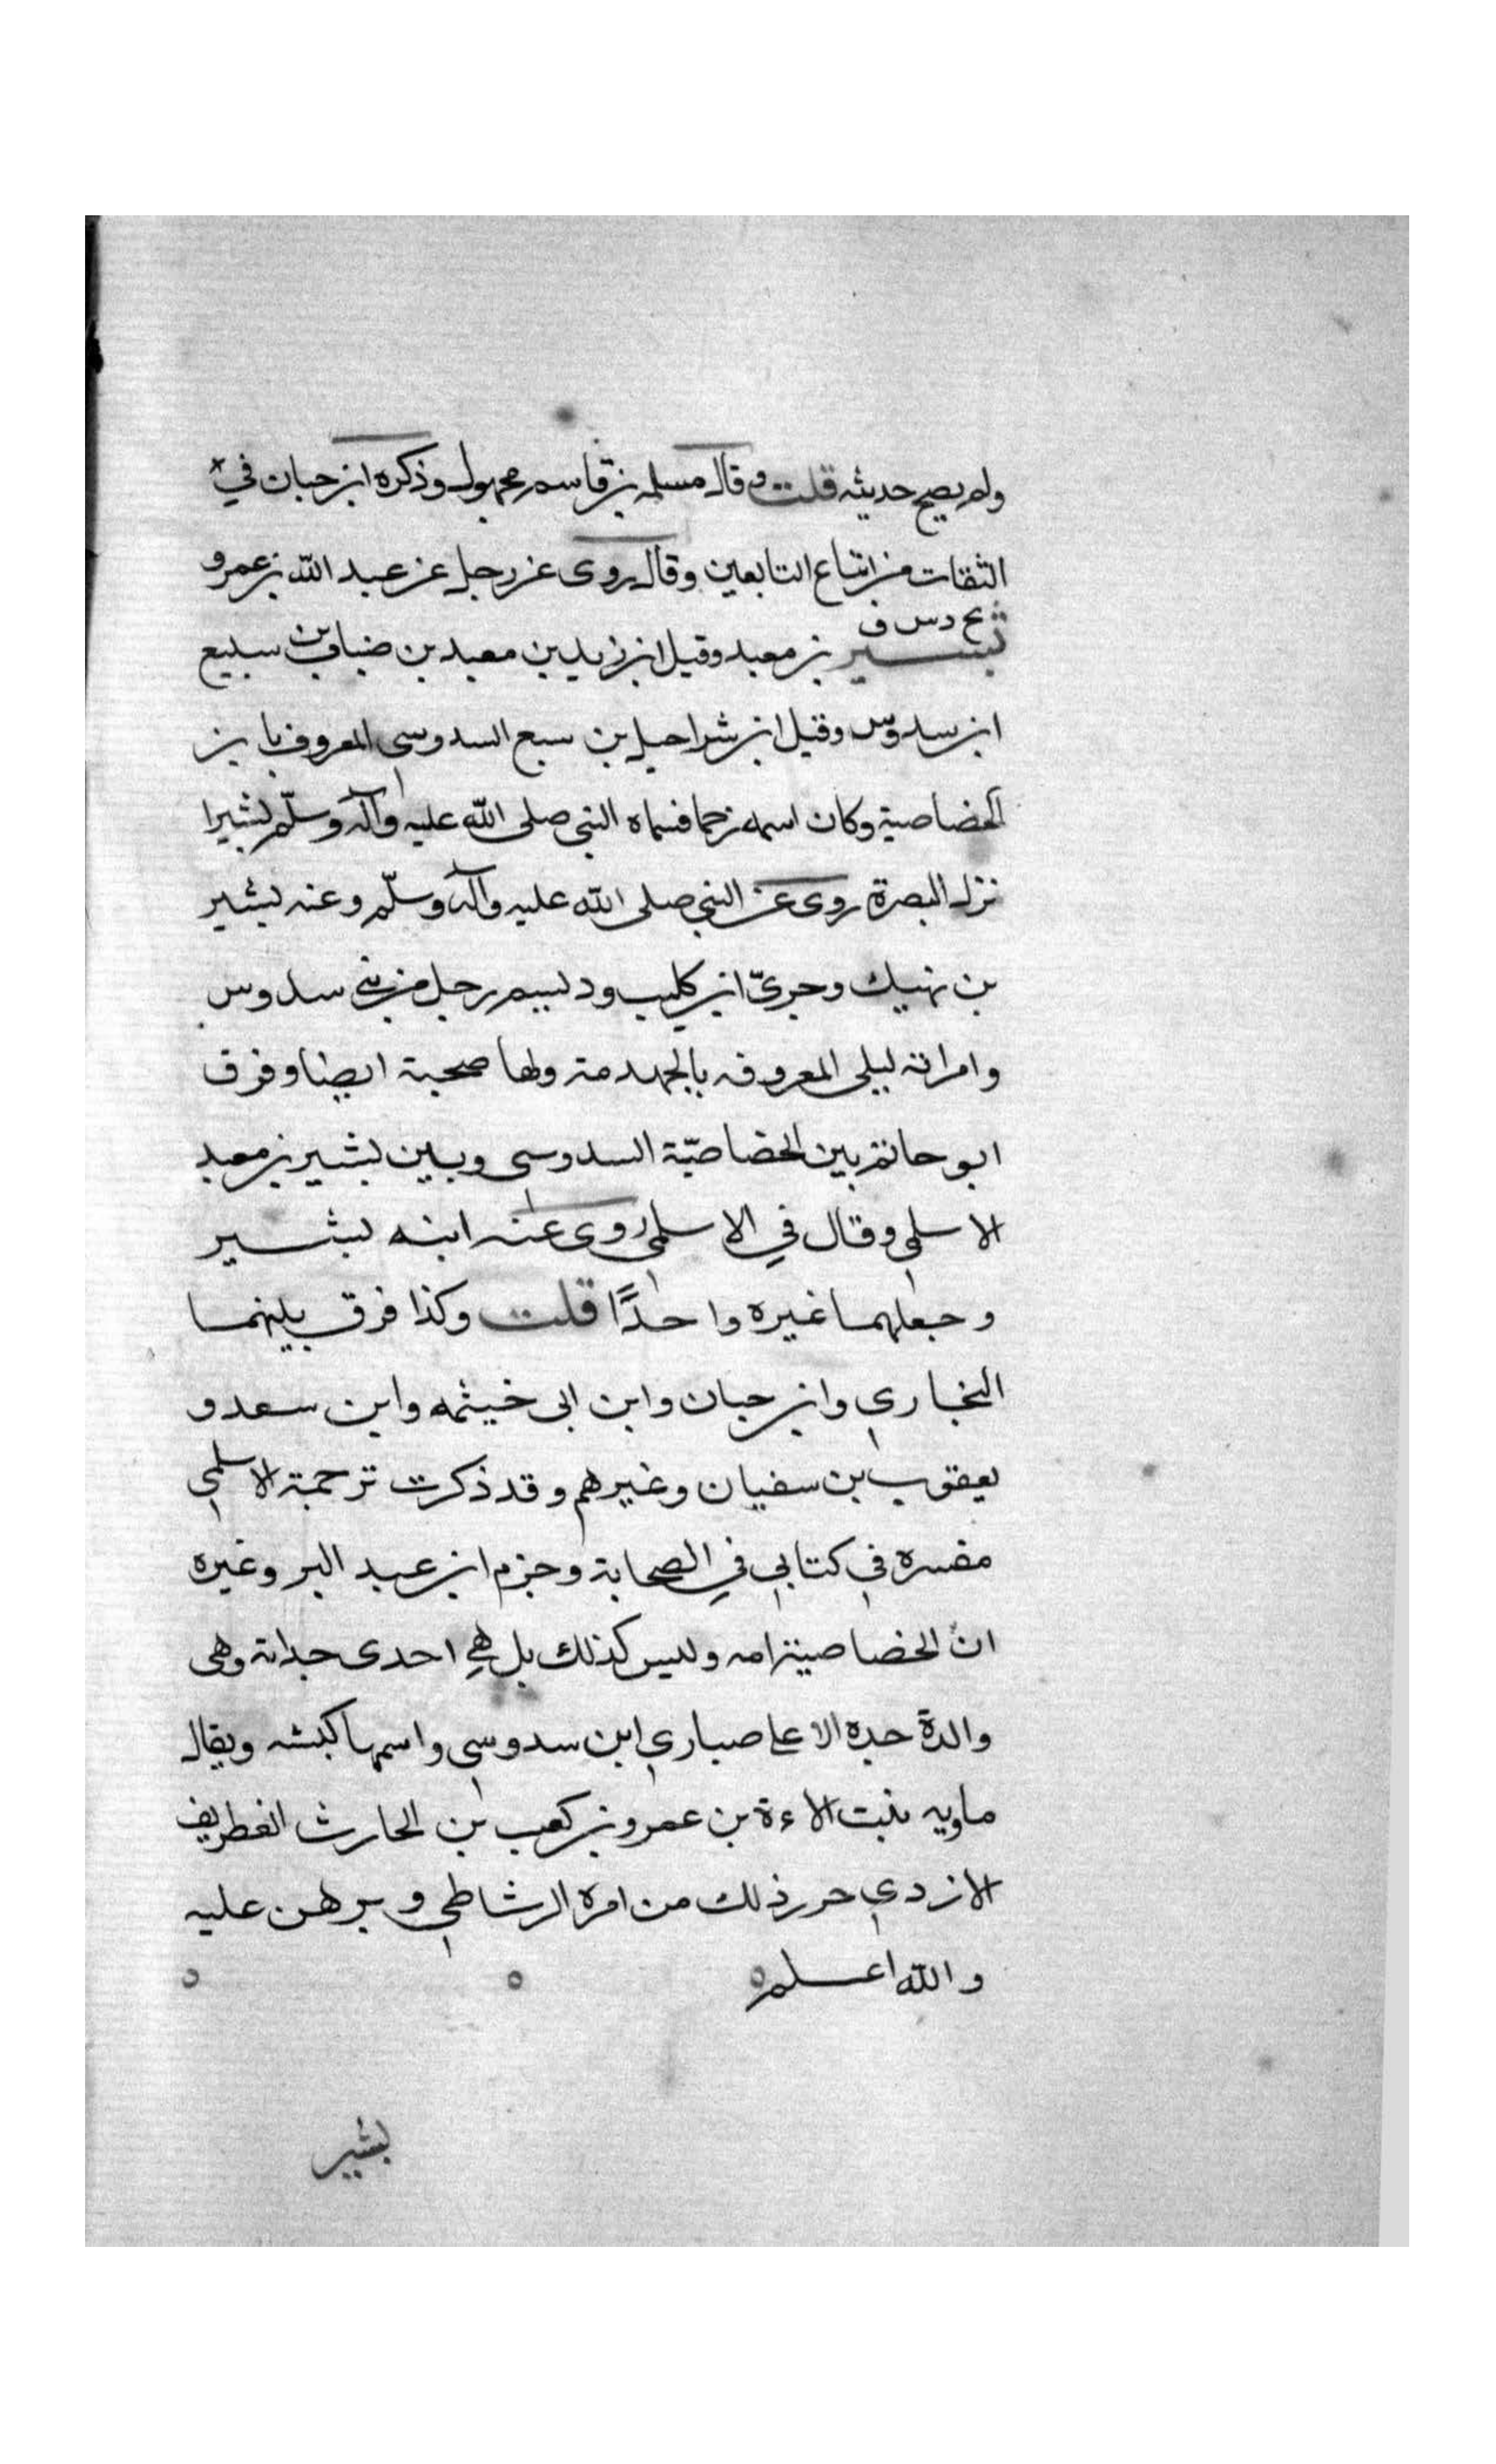 ولم يصح حديثه قلت وقال مسلمه بن قاسم مجهول وذكره ابن حبان في
الثقات من اتباع التابعين وقال روى عن رجل عن عبد الله بن عمرو
بخ د س ق
بشير بن معبد وقيل ابن زيد بن معبد بن ضباب بن سبيع
ابن سدوس وقيل ابن شراحيل بن سبع السدوسي المعروف بابن
الخصاصية وكان اسمه زحما فسماه النبي صلى الله عليه وآله وسلّم بشيرا
نزل البصرة روى عن النبي صلى الله عليه وآله وسلّم وعنه بشير
بن نهيك وجريّ ابن كليب ودليم رجل من بني سدوس
وامراته ليلى المعروفه بالجهدمة ولها صحبة ايضا وفرق
ابو حاتم بين الخصاصيّة السدوسي وبين بشير بن معبد
الاسلمي وقال في الاسلمي روى عنه ابنه بشير
وجعلهما غيره واحدًا قلت وكذا فرق بينهما
البخاري وابن حبان وابن ابي خيثمه وابن سعد و
يعقوب بن سفيان وغيرهم وقد ذكرت ترجمة الاسلمي
مفسرة في كتابي في الصحابة وجزم ابن عبد البر وغيره
ان الخصاصية امه وليس كذلك بل هي احدى جداته وهي
والدة جده الاعلى صباري ابن سدوسي واسمها كبشه ويقال
ماويه بنت الاءة بن عمرو بن كعب بن الحارث الغطريف
الازدي حرر ذلك من امره الرشاطي وبرهن عليه
والله اعلم
بشير